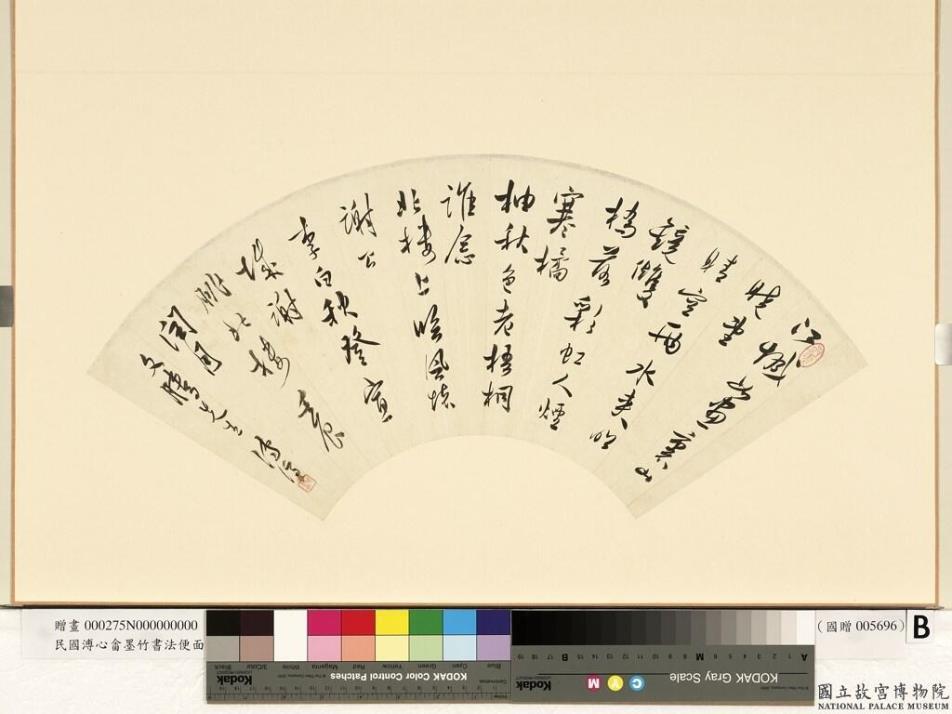 江城如畫裏山
曉望
晴空兩水夾明
鏡雙
橋落彩虹人煙
寒橘
柚秋色老梧桐
誰念
北樓上臨風懷
謝公
李白秋登宣
城謝
朓北樓壬辰
閏月
文先生溥儒
贈畫 000275N000000000
民國溥心畬墨竹書法便面
(國贈 005696)
B
KODAK Color Control Patches
Kodak
Blue Cyan Green Yellow Red Magenta White 3/Color Black
KODAK Gray Scale
Kodak
C Y M
A M B
國立故宮博物院
NATIONAL PALACE MUSEUM